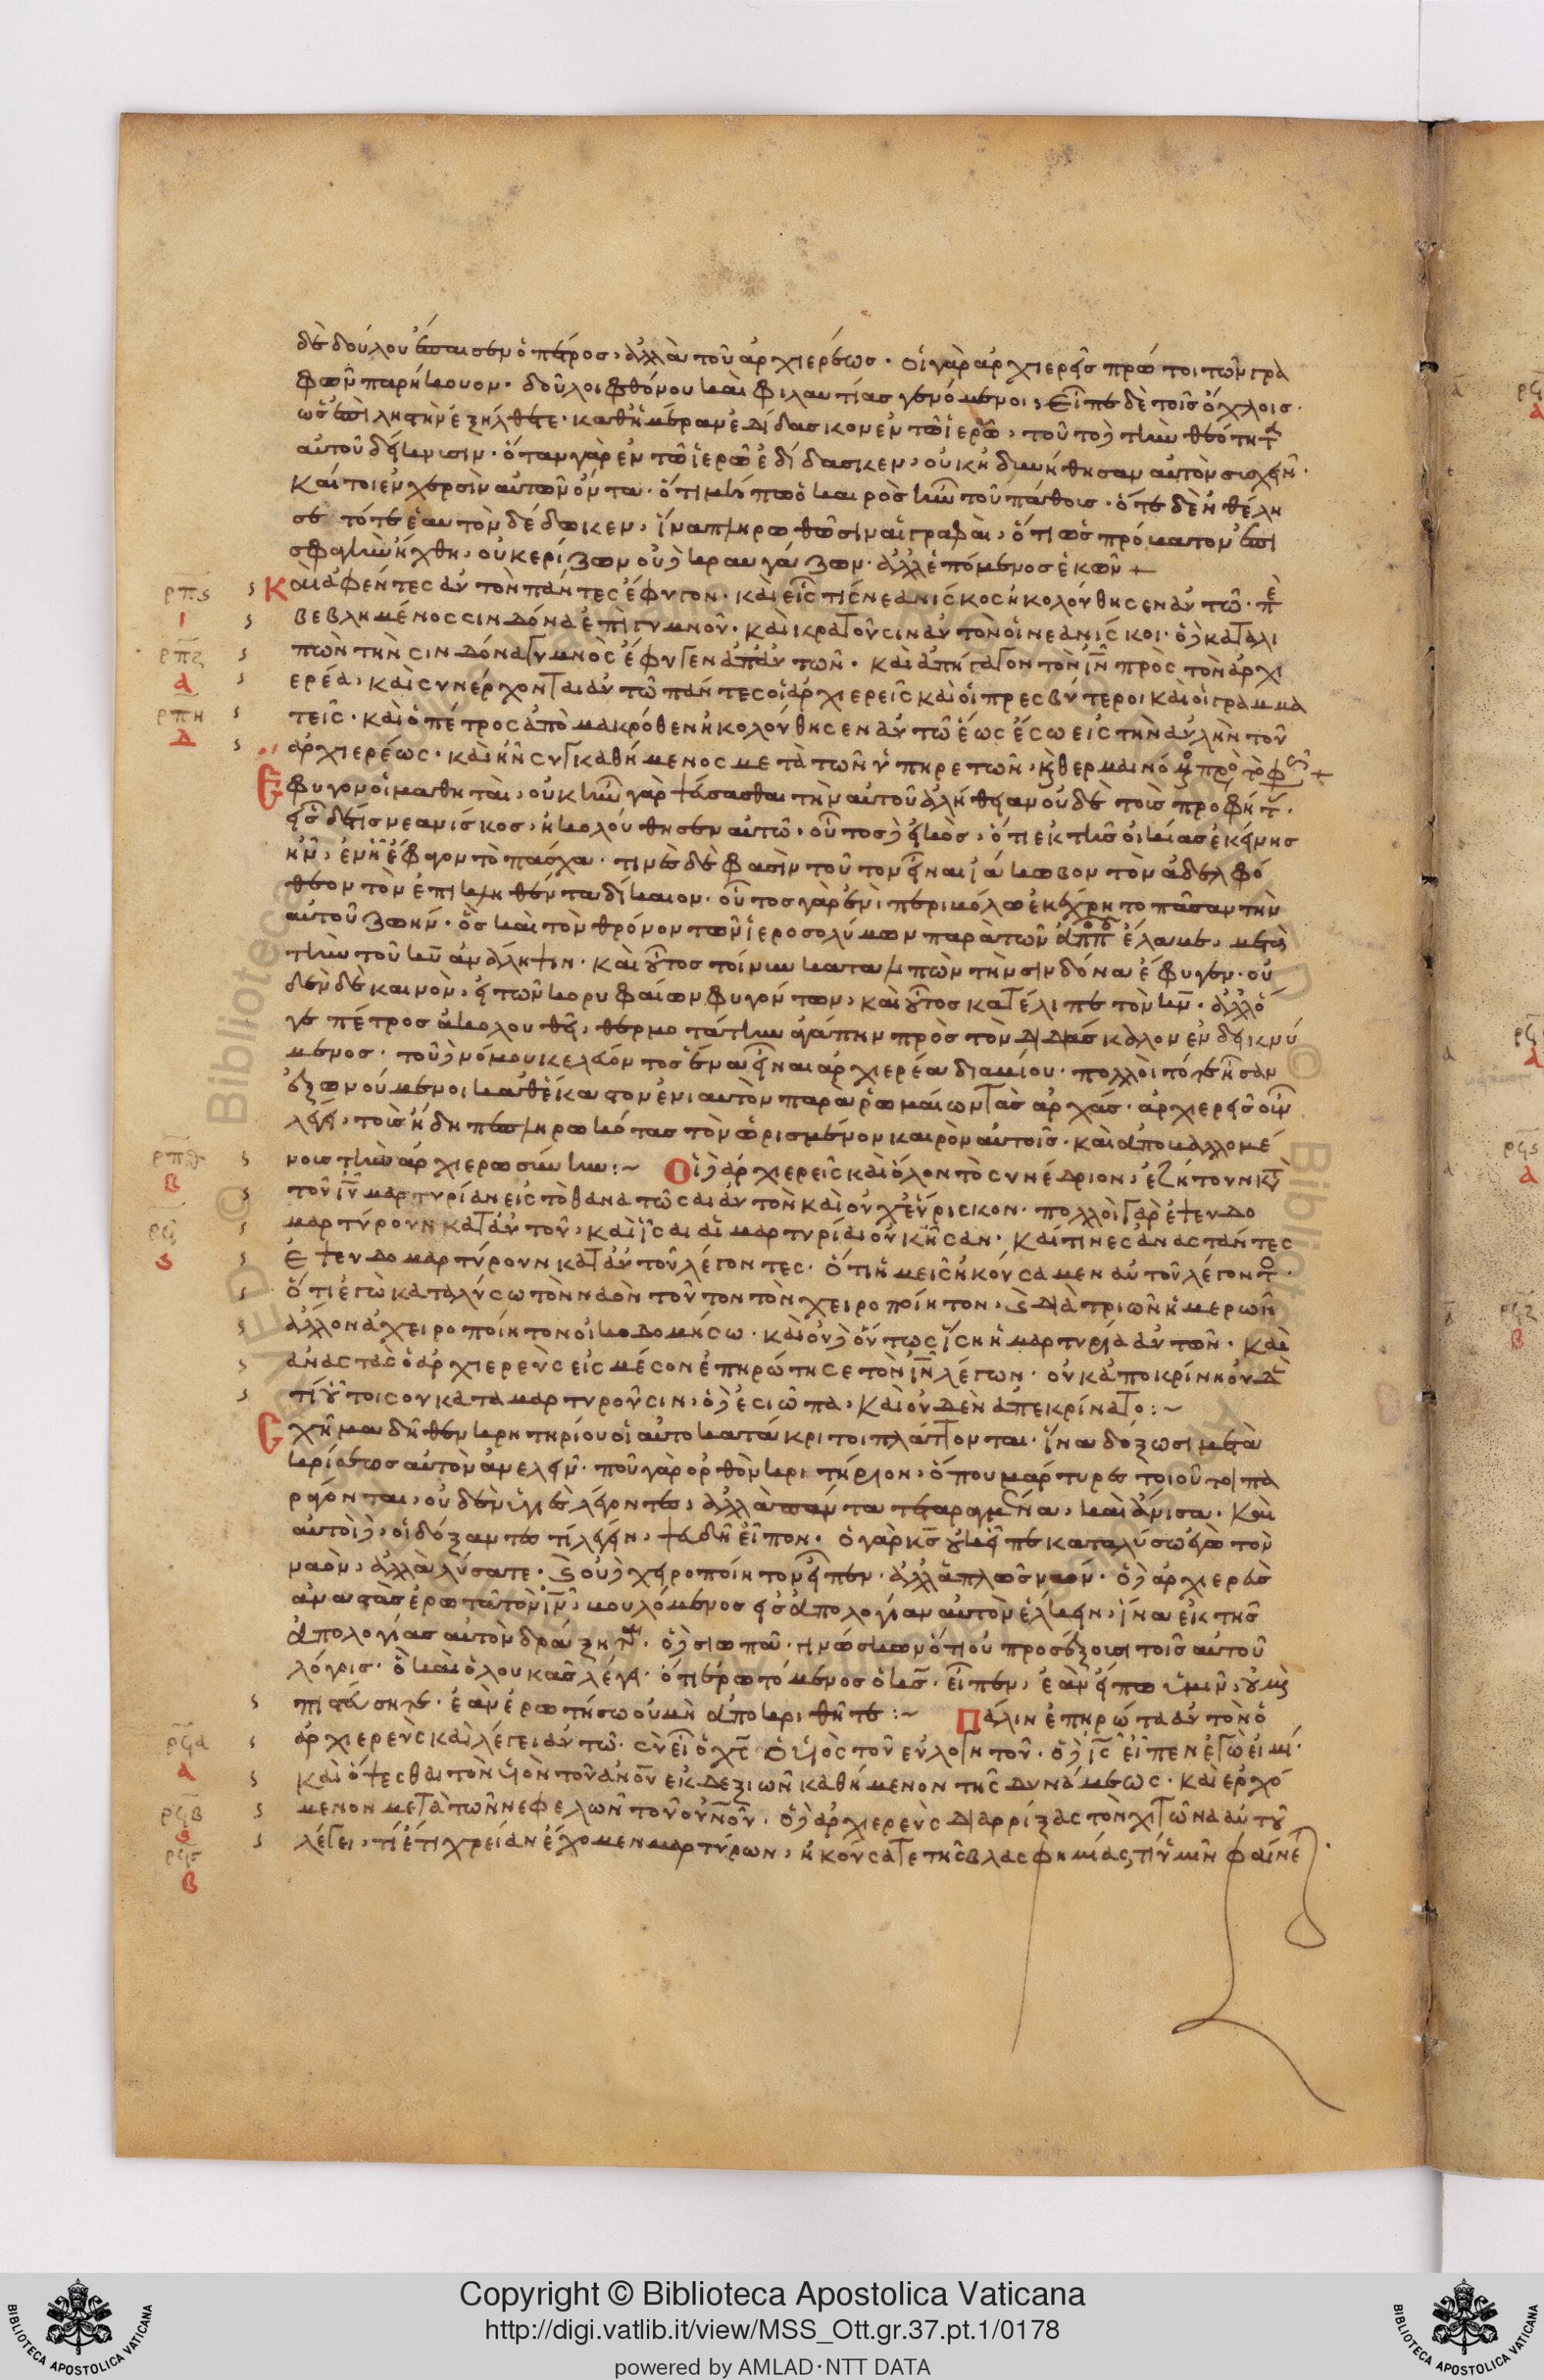 δὲ δούλον ἔπαισεν ὁ πέτρος, ἀλλὰ τοῦ ἀρχιερέως. οἱ γὰρ ἀρχιερεῖς πρῶτοι τῶν γρα
φῶν παρήκουον. δοῦλοι φθόνου καὶ φιλαυτίας γενόμενοι, Εἶπε δὲ τοῖς ὄχλοις.
ὡς ἐπὶ ληστὴν ἐξήλθετε. καθημέραν ἐδίδασκον ἐν τῷ ἱερῷ, τοῦτο τὴν θεότητα
αὐτοῦ δείκνυσιν. ὅταν γὰρ ἐν τῷ ἱερῷ ἐδίδασκεν, οὐκ ἠδυνήθησαν αὐτὸν συσχεῖν.
Καίτοι ἐν χερσὶν αὐτῶν ὄντα. ὅτι μήπω ὁ καιρὸς ἦν τοῦ πάθους. ὅτε δὲ ἠθέλη
σε τότε ἑαυτὸν δέδωκεν, ἵνα πληρωθῶσιν αἱ γραφαὶ, ὅτι ὡς πρόβατον ἐπὶ
σφαγὴν ἤχθη, οὐκ ἐρίζων οὐ κραυγάζων. ἀλλ' ἑπόμενος ἑκὼν +
ρπς Καὶ ἀφέντες αὐτὸν πάντες ἔφυγον. καὶ εἷς τίς νεανίσκος ἠκολούθησεν αὐτῷ. πε
ι βεβλημένος σινδόνα ἐπὶ γυμνοῦ. καὶ κρατοῦσιν αὐτὸν οἱ νεανίσκοι. ὁ καταλι
ρπζ πὼν τὴν σινδόνα γυμνὸς ἔφυγεν ἀπ' αὐτῶν. καὶ ἀπήγαγον τὸν ιν πρὸς τὸν ἀρχι
α ερέα, καὶ συνέρχονται αὐτῷ πάντες οἱ ἀρχιερεῖς καὶ οἱ πρεσβύτεροι καὶ οἱ γραμμα
ρπη τεῖς. καὶ ὁ πέτρος ἀπὸ μακρόθεν ἠκολούθησεν αὐτῷ ἕως ἔσω εἰς τὴν αὐλὴν τοῦ
δ ἀρχιερέως. καὶ ἦν συγκαθήμενος μετὰ τῶν ὑπηρετῶν, θερμαινόμενος πρὸς τὸ φῶς +
Εφυγον οἱ μαθηταὶ, οὐκ ἦν γὰρ ψεύσασθαι τὴν αὐτοῦ ἀλήθειαν οὐδὲ τοὺς προφήτας.
εἷς δέ τις νεανίσκος, ἠκολούθησεν αὐτῷ. οὗτος εἰκὸς, ὅτι ἐκ τῆς οἰκίας ἐκείνης
ἦν, ἐν ᾗ ἔφαγον τὸ πάσχα. τινὲς δὲ φασὶν τοῦτον εἶναι ἰάκωβον τὸν ἀδελφό
θεον τὸν ἐπικληθέντα δίκαιον. οὗτος γὰρ ἑνὶ περιβολαίῳ ἐκέχρητο πᾶσαν τὴν
αὐτοῦ ζωήν. ὃς καὶ τὸν θρόνον τῶν ἱεροσολύμων παρὰ τῶν ἀποστόλων ἔλαβε, μετὰ
τὴν τοῦ κυ ἀνάληψιν. καὶ οὗτος τοίνυν καταλιπὼν τὴν σινδόνα ἔφυγεν. οὐ
δὲν δὲ καινὸν, εἰ τῶν κορυφαίων φυγόντων, καὶ οὗτος κατέλιπε τὸν κν. ἀλλ' ὅ
γε πέτρος ἀκολουθεῖ, θερμοτάτην ἀγάπην πρὸς τὸν διδάσκαλον ἐνδεικνύ
μενος. τοῦ νόμου κελεύοντος ἕνα εἶναι ἀρχιερέα διὰ βίου. πολλοὶ τότε ἦσαν
ἐξωνούμενοι καθ' ἕκαστον ἐνιαυτὸν παρὰ ῥωμαίων τὰς ἀρχάς. ἀρχιερεῖς οὖν
λέγει, τοὺς ἤδη πεπληρωκότας τὸν ὡρισμένον καιρὸν αὐτοῖς. καὶ ἀποβαλλομέ
ρπθ νους τὴν ἀρχιερωσύνην :~ Οἱ ἀρχιερεῖς καὶ ὅλον τὸ συνέδριον, ἐζήτουν κατὰ
β τοῦ ιυ μαρτυρίαν εἰς τὸ θανατῶσαι αὐτὸν καὶ οὐχ εὕρισκον. πολλοὶ γὰρ ἐψευδο
ρϟ μαρτύρουν κατ' αὐτοῦ, καὶ ἴσαι αἱ μαρτυρίαι οὐκ ἦσαν. Καί τινες ἀναστάντες
ς ἐψευδομαρτύρουν κατ' αὐτοῦ λέγοντες. ὅτι ἡμεῖς ἠκούσαμεν αὐτοῦ λέγοντος.
ὅτι ἐγὼ καταλύσω τὸν ναὸν τοῦτον τὸν χειροποίητον, διὰ τριῶν ἡμερῶν
ἄλλον ἀχειροποίητον οἰκοδομήσω. καὶ οὐ οὕτως ἴση ἡ μαρτυρία αὐτῶν. Καὶ
ἀναστὰς ὁ ἀρχιερεὺς εἰς μέσον ἐπηρώτησε τὸν ιν λέγων. οὐκ ἀποκρίνῃ οὐδὲ
τί οὗτοι σου καταμαρτυροῦσιν, ὁ ἐσιώπα, Καὶ οὐδὲν ἀπεκρίνατο :~
Σχῆμα δῆθεν κριτηρίου οἱ αὐτοκατάκριτοι πλάττονται. ἵνα δόξωσι μετὰ
κρίσεως αὐτὸν ἀνελεῖν. ποῦ γὰρ ὀρθὸν κριτήριον, ὅπου μάρτυρες τοιοῦτοι πα
ράγονται, οὐδὲν ὑγιὲς λέγοντες, ἀλλὰ πάντα τεταραγμένα, καὶ ἄνισα. Καὶ
αὐτοὶ, οἱ δόξαντές τι λέγειν, ψευδῆ εἶπον. ὁ γὰρ κς οὐκ εἶπε καταλύσω ἐγὼ τὸν
ναὸν, ἀλλὰ λύσατε. οὐ χειροποίητον εἶπεν. ἀλλ' ἁπλῶς ναόν. ὁ ἀρχιερεὺς
ἀναστὰς ἐρωτᾷ τὸν ιν, βουλόμενος εἰς ἀπολογίαν αὐτὸν ἕλκειν, ἵνα ἐκ τῆς
ἀπολογίας αὐτὸν δράξηται. ὁ σιωπᾷ. γινώσκων ὅτι οὐ προσέξουσι τοῖς αὐτοῦ
λόγοις. ὃ καὶ ὁ λουκᾶς λέγει. ὅτι ἐρωτώμενος ὁ κς. εἶπεν, ἐὰν εἴπω ὑμῖν, οὐ μὴ
πιστεύσητε. ἐὰν ἐρωτήσω οὐ μὴ ἀποκριθῆτε :~ Πάλιν ἐπηρώτα αὐτὸν ὁ
ρϟα ἀρχιερεὺς καὶ λέγει αὐτῷ. σὺ εἶ ὁ χς ὁ υἱὸς τοῦ εὐλογητοῦ. ὁ ις εἶπεν ἐγώ εἰμι.
α καὶ ὄψεσθαι τὸν υἱὸν τοῦ ανου ἐκ δεξιῶν καθήμενον τῆς δυνάμεως. καὶ ἐρχό
ρϟβ μενον μετὰ τῶν νεφελῶν τοῦ ουνου. ὁ ἀρχιερεὺς διαρρίξας τὸν χιτῶνα αὐτοῦ
λέγει, τί ἔτι χρείαν ἔχομεν μαρτύρων, ἠκούσατε τῆς βλασφημίας, τί ὑμῖν φαίνε
β
Copyright © Biblioteca Apostolica Vaticana
http://digi.vatlib.it/view/MSS_Ott.gr.37.pt.1/0178
powered by AMLAD·NTT DATA
BIBLIOTECA APOSTOLICA VATICANA
BIBLIOTECA APOSTOLICA VATICANA